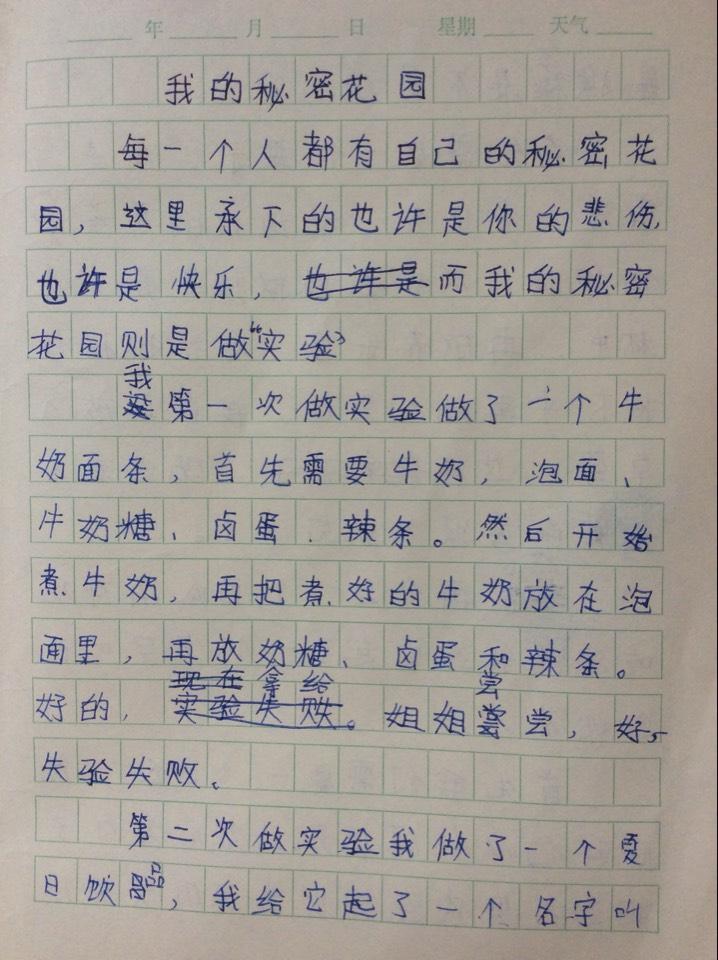 年 月 日 星期 天气
我的秘密花园
每一个人都有自己的秘密花
园，这里承下的也许是你的悲伤，
也许是快乐，也许是而我的秘密
花园则是做“实验”
我第一次做实验做了一个牛
奶面条，首先需要牛奶，泡面、
牛奶糖、卤蛋、辣条。然后开始
煮牛奶，再把煮好的牛奶放在泡
面里，再放奶糖、卤蛋和辣条。
现在拿给
好的，实验失败。姐姐尝尝，好，
失验失败。
第二次做实验我做了一个夏
日饮品，我给它起了一个名字叫